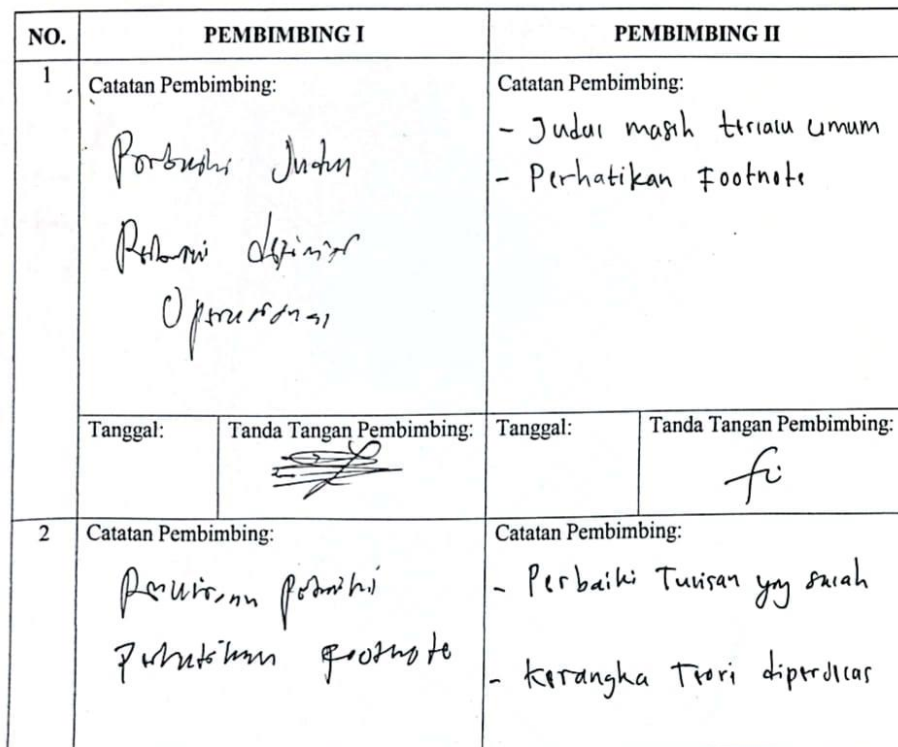 NO. PEMBIMBING I PEMBIMBING II
1 Catatan Pembimbing:
Perbaiki Judul
Perbaiki definisi
Operasional
Catatan Pembimbing:
- Judul masih terlalu umum
- Perhatikan Footnote
Tanggal: Tanda Tangan Pembimbing: Tanggal: Tanda Tangan Pembimbing:
2 Catatan Pembimbing:
Penulisan perbaiki
Perhatikan footnote
Catatan Pembimbing:
- Perbaiki Tulisan yg salah
- Kerangka Teori diperjelas